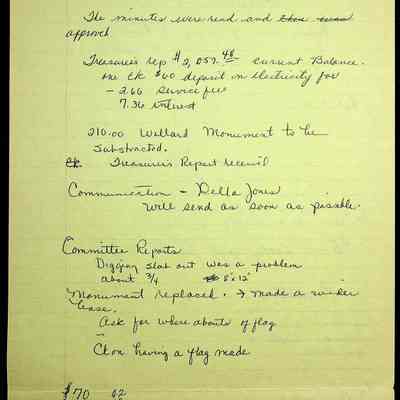 The minutes were read and
approved.
Treasures rep $2,057.48 current Balance.
one ck $60 deposit on electricity for
- 2.66 service fees
7.36 interest
210.00 Willard Monument to be
substracted.
Treasurer's Report received
Communication - Della Jones
will send as soon as possible.
Committee Reports
Digging slab out was a problem
about 3/4 8'x12'
Monument replaced. → made a wider
base.
Ask for where abouts of flag
having a flag made
$70